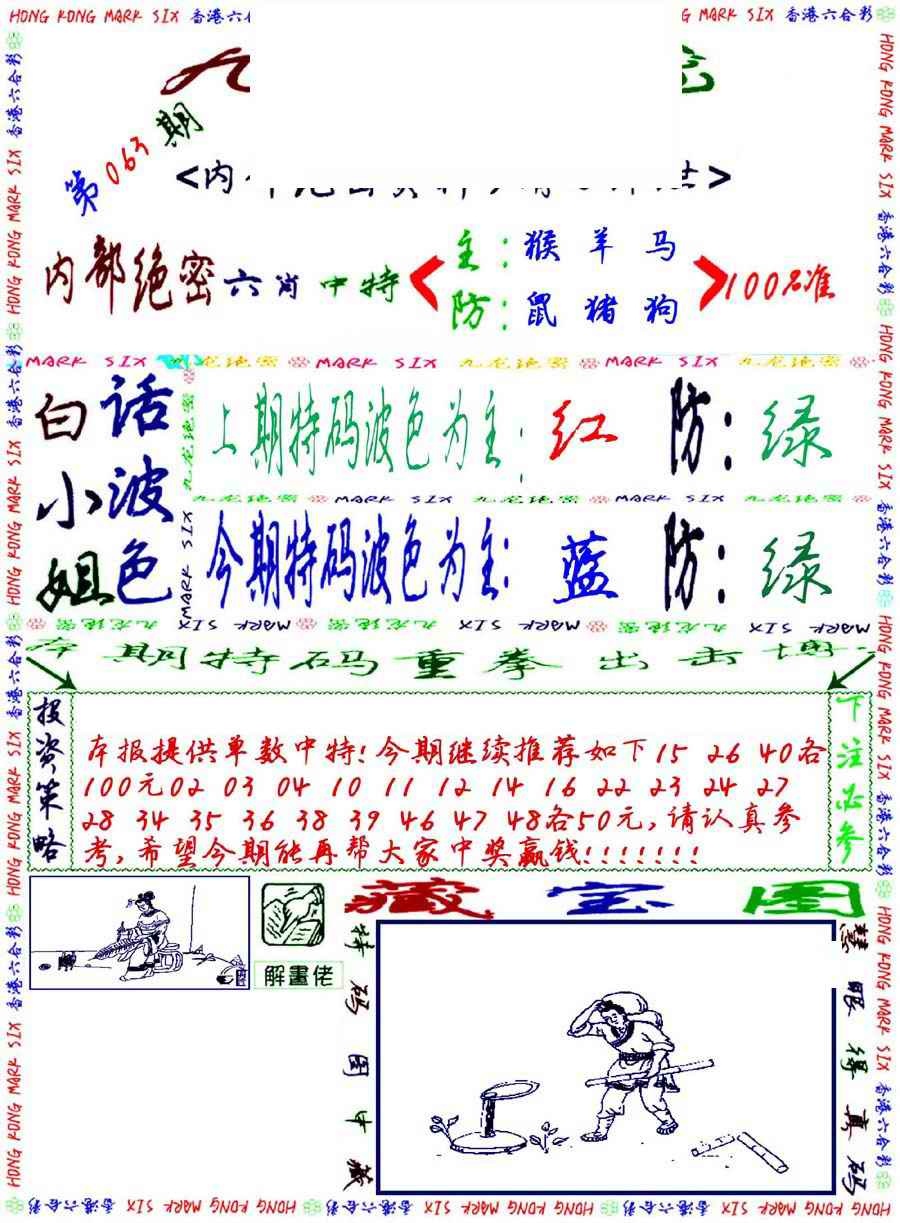 HONG KONG MARK SIX 香港六合彩
第063期
内部绝密六肖中特
主：猴 羊 马
防：鼠 猪 狗
100%准
MARK SIX 九龙绝密 MARK SIX 九龙绝密 MARK SIX 九龙绝密
白话小波姐色
上期特码波色为主：红 防：绿
九龙绝密 MARK SIX 九龙绝密 MARK SIX 九龙绝密
今期特码波色为主：蓝 防：绿
九龙绝密 MARK SIX MARK SIX 九龙绝密 MARK SIX 九龙绝密 MARK SIX
本期特码重拳出击博
投资策略
本报提供单数中特!今期继续推荐如下15 26 40各
100元02 03 04 10 11 12 14 16 22 23 24 27
28 34 35 36 38 39 46 47 48各50元,请认真参
考,希望今期能再帮大家中奖赢钱!!!!!!!
下注必参
解畫佬
藏宝图
特码图中藏
慧眼得真码
HONG KONG MARK SIX 香港六合彩